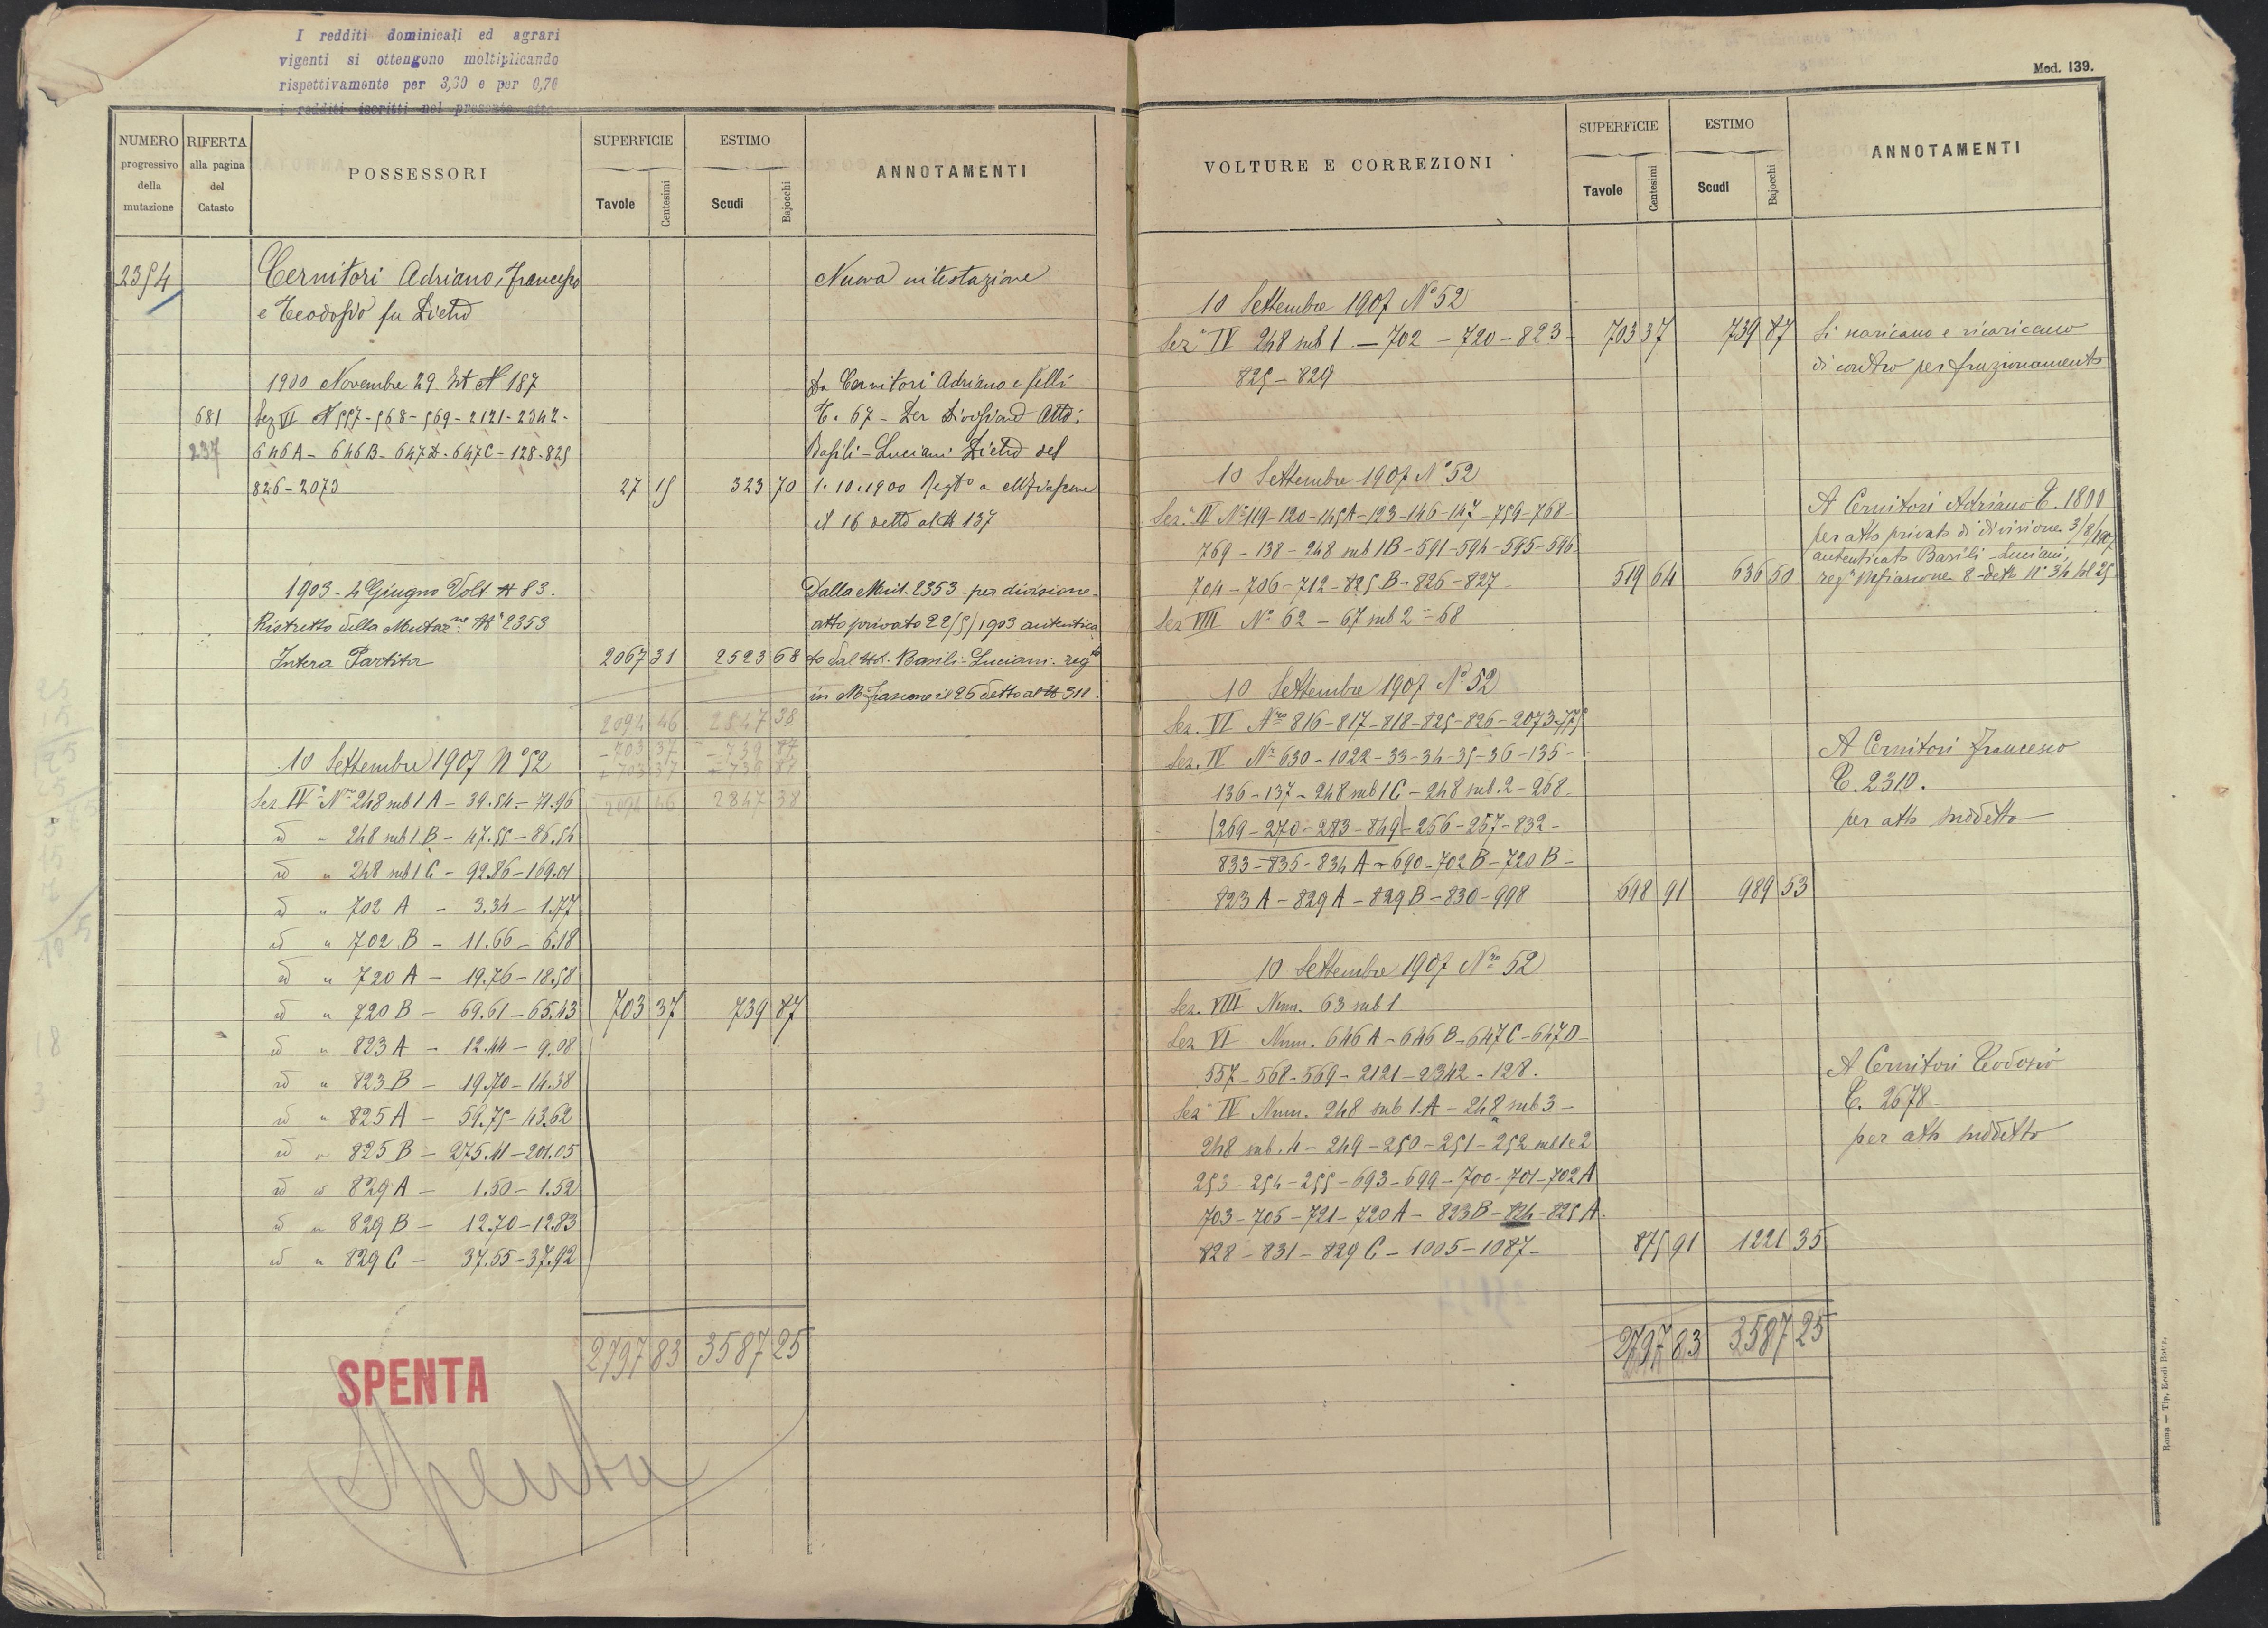 I redditi dominicali ed agrari
vigenti si ottengono moltiplicando
rispettivamente per 3,60 e per 0,76
i redditi iscritti nel presente atto
NUMERO
progressivo
della
mutazione
RIFERTA
alla pagina
del
Catasto
POSSESSORI
SUPERFICIE
Tavole
Centesimi
ESTIMO
Scudi
Bajocchi
ANNOTAMENTI
2354
Cernitori Adriano, Francesco
e Teodosio fu Pietro
Nuova intestazione
1900 Novembre 29. N 187
Da Cernitori Adriano e felli
681 Sez VI N 557-568-569-2121-2342-
C. 67 - Per Divisione Atto:
237 646A - 646B - 647D - 647C - 128-825
Basili-Luciani Pietro del
826-2073 27 15 323 70
1. 10. 1900 Regto a Mfiascone
il 16 detto al N 137
1903 - 4 Giugno Volt. N 83.
Dalla Mut. 2353 - per divisione
Ristretto della Mutazne N° 2353
atto privato 22/5/1903 autentica
Intera Partita 2067 31 2523 68
to dal Not. Basili-Luciani. regto
in M.fiascone il 26 detto al N 311.
2094 46 2847 38
- 703 37 - 739 87
+ 703 37 + 739 87
2094 46 2847 38
10 Settembre 1907 N° 52
Sez IV Nro 248 sub 1 A - 39.54 - 71.96
id " 248 sub 1 B - 47.55 - 86.54
id " 248 sub 1 C - 92.86 - 169.01
id " 702 A - 3.34 - 1.77
id " 702 B - 11.66 - 6.18
id " 720 A - 19.76 - 18.58
id " 720 B - 69.61 - 65.43 703 37 739 87
id " 823 A - 12.44 - 9.08
id " 823 B - 19.70 - 14.38
id " 825 A - 59.75 - 43.62
id " 825 B - 275.41 - 201.05
id " 829 A - 1.50 - 1.52
id " 829 B - 12.70 - 12.83
id " 829 C - 37.55 - 37.92
2797 83 3587 25
SPENTA
Spenta
Mod. 139.
VOLTURE E CORREZIONI
SUPERFICIE
Tavole
Centesimi
ESTIMO
Scudi
Bajocchi
ANNOTAMENTI
10 Settembre 1907 N° 52
Sez IV 248 sub 1 - 702 - 720 - 823 - 703 37 739 87
825 - 829
Si scaricano e ricaricano
di contro per frazionamento
10 Settembre 1907 N° 52
Sez. IV N° 119-120-145A-123-146-147-759-768-
769-138-248 sub 1B-591-594-595-596
704-706-712-825 B-826-827 519 64 636 50
Sez VIII N° 62 - 67 sub 2 - 68
A Cernitori Adriano C. 1800
per atto privato di divisione 3/8/1907
autenticato Basili-Luciani
reg° Mfiascone 8 detto N° 34 vol 25
10 Settembre 1907 N° 52
Sez. VI Nro 816-817-818-825-826-2073-775
Sez. IV N° 630-1022-33-34-35-36-135-
136-137-248 sub 1 C-248 sub.2-268-
269-270-283-849-256-257-832-
833-835-834 A-690-702 B-720 B-
823 A-829 A-829 B-830-998 698 91 989 53
A Cernitori Francesco
C. 2310.
per atto suddetto
10 Settembre 1907 Nro 52
Sez. VIII Num. 63 sub 1
Sez VI Num. 646 A-646 B-647 C-647 D-
557-568-569-2121-2342-128.
Sez IV Num. 248 sub 1.A-248 sub 3-
248 sub. 4-249-250-251-252 sub 1 e 2
253-254-255-693-699-700-701-702 A
703-705-721-720 A-823 B-824-825 A
828-831-829 C-1005-1087- 875 91 1221 35
A Cernitori Teodosio
C. 2678
per atto suddetto
2797 83 3587 25